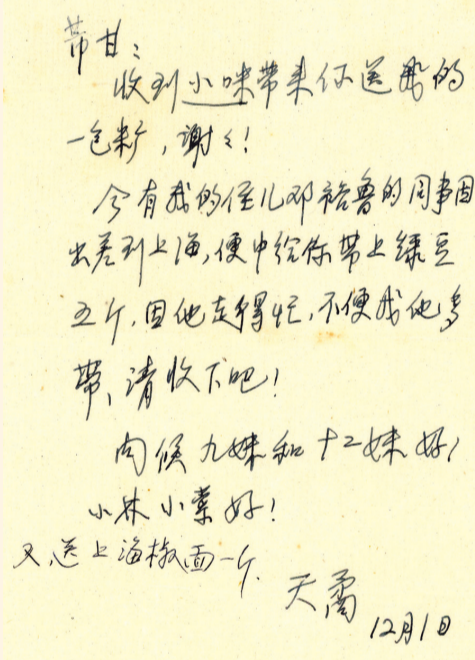 芾甘：
收到小咪带来你送我的
一包粉，谢々！
今有我的侄儿邓裕鲁的同事因
出差到上海，便中给你带上绿豆
五斤，因他走得忙，不便找他多
带，请收下吧！
问候九妹和十二妹好！
小林小棠好！
又，送上海椒面一斤。
天矞
12月1日